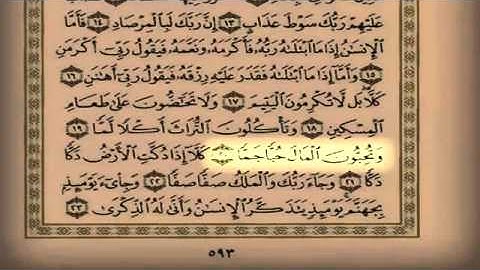 عَلَيْهِمْ رَبُّكَ سَوْطَ عَذَابٍ ١٣ إِنَّ رَبَّكَ لَبِالْمِرْصَادِ ١٤ فَأَمَّا
الْإِنسَٰنُ إِذَا مَا ابْتَلَىٰهُ رَبُّهُ فَأَكْرَمَهُ وَنَعَّمَهُ فَيَقُولُ رَبِّي أَكْرَمَنِ
١٥ وَأَمَّا إِذَا مَا ابْتَلَىٰهُ فَقَدَرَ عَلَيْهِ رِزْقَهُ فَيَقُولُ رَبِّي أَهَٰنَنِ ١٦
كَلَّا بَل لَّا تُكْرِمُونَ الْيَتِيمَ ١٧ وَلَا تَحَٰضُّونَ عَلَىٰ طَعَامِ
الْمِسْكِينِ ١٨ وَتَأْكُلُونَ التُّرَاثَ أَكْلًا لَّمًّا ١٩
وَتُحِبُّونَ الْمَالَ حُبًّا جَمًّا ٢٠ كَلَّا إِذَا دُكَّتِ الْأَرْضُ دَكًّا
دَكًّا ٢١ وَجَاءَ رَبُّكَ وَالْمَلَكُ صَفًّا صَفًّا ٢٢ وَجِاْىٓءَ يَوْمَئِذٍ
بِجَهَنَّمَ يَوْمَئِذٍ يَتَذَكَّرُ الْإِنسَٰنُ وَأَنَّىٰ لَهُ الذِّكْرَىٰ ٢٣
٥٩٣